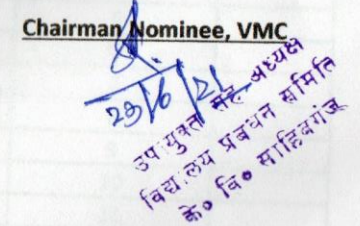 Chairman Nominee, VMC
23/6/21
उपायुक्त सह अध्यक्ष
विद्यालय प्रबंधन समिति
के० वि० साहिबगंज